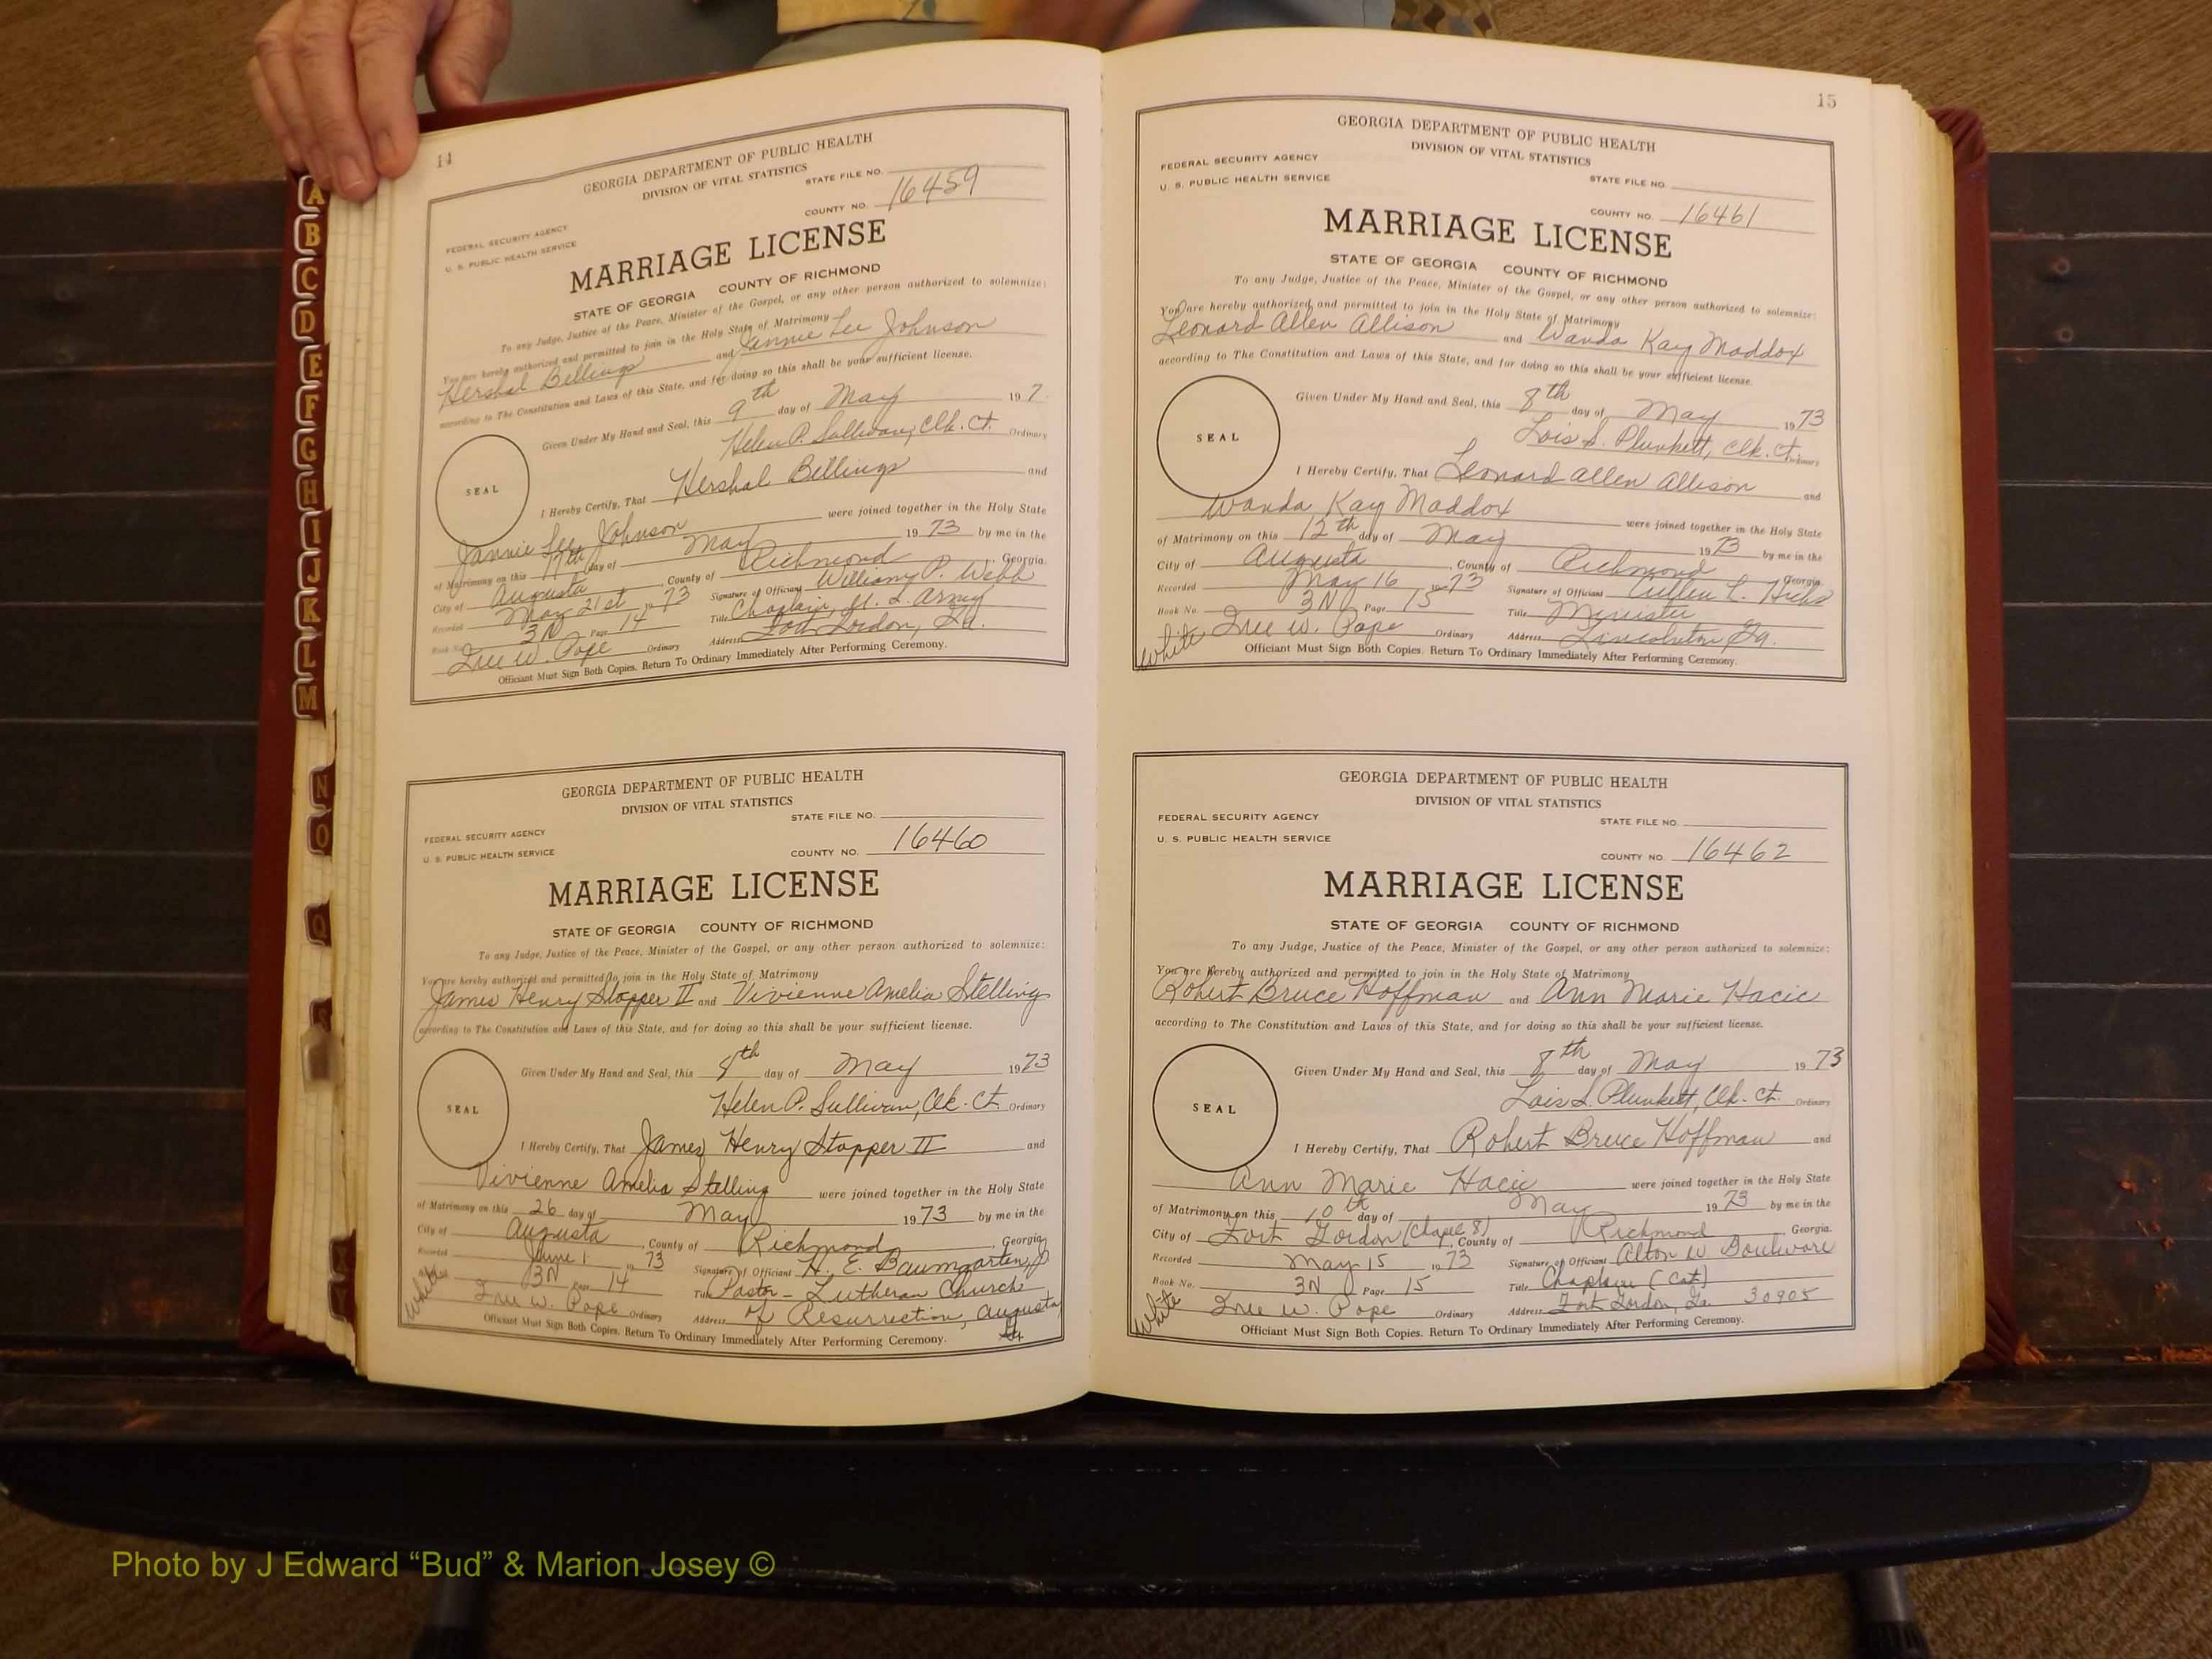 A
B
C
D
E
F
G
H
I
J
K
L
M
N
O
Q
S
14
GEORGIA DEPARTMENT OF PUBLIC HEALTH
DIVISION OF VITAL STATISTICS
STATE FILE NO.
COUNTY NO. 16459
FEDERAL SECURITY AGENCY
U. S. PUBLIC HEALTH SERVICE
MARRIAGE LICENSE
STATE OF GEORGIA COUNTY OF RICHMOND
To any Judge, Justice of the Peace, Minister of the Gospel, or any other person authorized to solemnize:
You are hereby authorized and permitted to join in the Holy State of Matrimony
Hershal Bellings and Jannie Lee Johnson
according to The Constitution and Laws of this State, and for doing so this shall be your sufficient license.
Given Under My Hand and Seal, this 9th day of May 197
Helen P. Sullivan, Clk. Ct. Ordinary
SEAL
I Hereby Certify, That Hershal Bellings and
Jannie Lee Johnson were joined together in the Holy State
of Matrimony on this 17th day of May 1973 by me in the
City of Augusta, County of Richmond, Georgia.
Recorded May 21st 1973 Signature of Officiant William P. Webb
Book No. 3N Page 14 Title Chaplain, U. S. Army
Inee W. Pope Ordinary Address Fort Gordon, Ga.
Officiant Must Sign Both Copies. Return To Ordinary Immediately After Performing Ceremony.
GEORGIA DEPARTMENT OF PUBLIC HEALTH
DIVISION OF VITAL STATISTICS
STATE FILE NO.
FEDERAL SECURITY AGENCY
U. S. PUBLIC HEALTH SERVICE
COUNTY NO. 16460
MARRIAGE LICENSE
STATE OF GEORGIA COUNTY OF RICHMOND
To any Judge, Justice of the Peace, Minister of the Gospel, or any other person authorized to solemnize:
You are hereby authorized and permitted to join in the Holy State of Matrimony
James Henry Stopper II and Vivienne Amelia Stelling
according to The Constitution and Laws of this State, and for doing so this shall be your sufficient license.
Given Under My Hand and Seal, this 8th day of May 1973
Helen P. Sullivan, Clk. Ct. Ordinary
SEAL
I Hereby Certify, That James Henry Stopper II and
Vivienne Amelia Stelling were joined together in the Holy State
of Matrimony on this 26 day of May 1973 by me in the
City of Augusta, County of Richmond, Georgia.
Recorded June 1 1973 Signature of Officiant H. E. Baumgarten, Jr
Book No. 3N Page 14 Title Pastor - Lutheran Church
White Inee W. Pope Ordinary Address of Resurrection, Augusta, Ga.
Officiant Must Sign Both Copies. Return To Ordinary Immediately After Performing Ceremony.
15
GEORGIA DEPARTMENT OF PUBLIC HEALTH
DIVISION OF VITAL STATISTICS
FEDERAL SECURITY AGENCY
U. S. PUBLIC HEALTH SERVICE
STATE FILE NO.
COUNTY NO. 16461
MARRIAGE LICENSE
STATE OF GEORGIA COUNTY OF RICHMOND
To any Judge, Justice of the Peace, Minister of the Gospel, or any other person authorized to solemnize:
You are hereby authorized and permitted to join in the Holy State of Matrimony
Leonard Allen Allison and Wanda Kay Maddox
according to The Constitution and Laws of this State, and for doing so this shall be your sufficient license.
Given Under My Hand and Seal, this 8th day of May 1973
Lois S. Plunkett, Clk. Ct. Ordinary
SEAL
I Hereby Certify, That Leonard Allen Allison and
Wanda Kay Maddox were joined together in the Holy State
of Matrimony on this 12th day of May 1973 by me in the
City of Augusta, County of Richmond Georgia.
Recorded May 16 1973 Signature of Officiant Cullen L.
Book No. 3N Page 15 Title Minister
White Inee W. Pope Ordinary Address Lincolnton Ga.
Officiant Must Sign Both Copies. Return To Ordinary Immediately After Performing Ceremony.
GEORGIA DEPARTMENT OF PUBLIC HEALTH
DIVISION OF VITAL STATISTICS
FEDERAL SECURITY AGENCY
U. S. PUBLIC HEALTH SERVICE
STATE FILE NO.
COUNTY NO. 16462
MARRIAGE LICENSE
STATE OF GEORGIA COUNTY OF RICHMOND
To any Judge, Justice of the Peace, Minister of the Gospel, or any other person authorized to solemnize:
You are hereby authorized and permitted to join in the Holy State of Matrimony
Robert Bruce Hoffman and Ann Marie Hacic
according to The Constitution and Laws of this State, and for doing so this shall be your sufficient license.
Given Under My Hand and Seal, this 8th day of May 1973
Lois S. Plunkett, Clk. Ct. Ordinary
SEAL
I Hereby Certify, That Robert Bruce Hoffman and
Ann Marie Hacic were joined together in the Holy State
of Matrimony on this 10th day of May 1973 by me in the
City of Fort Gordon (Chapel 8), County of Richmond, Georgia.
Recorded May 15 1973 Signature of Officiant Alton W Boulware
Book No. 3N Page 15 Title Chaplain (Cpt)
White Inee W. Pope Ordinary Address Fort Gordon, Ga. 30905
Officiant Must Sign Both Copies. Return To Ordinary Immediately After Performing Ceremony.
Photo by J Edward “Bud” & Marion Josey ©